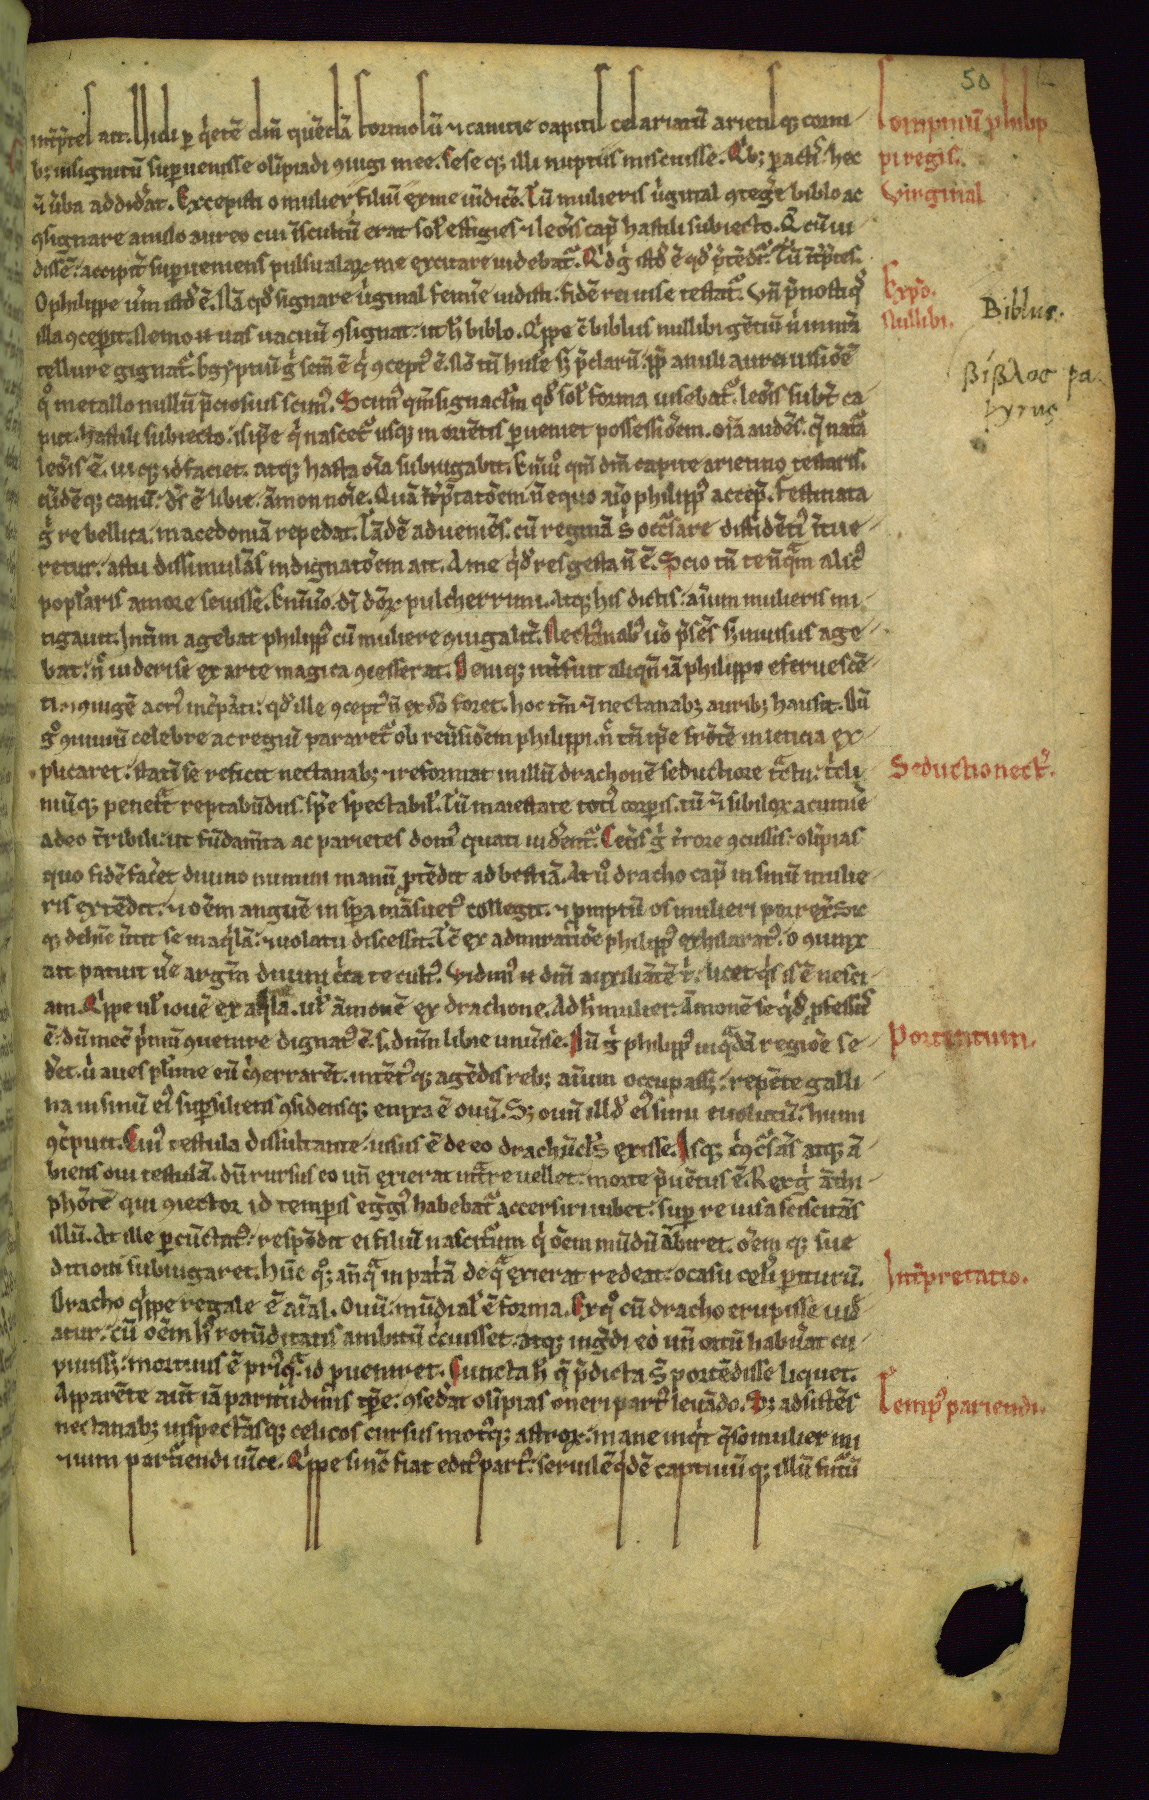 int̄p̄tes ait. Uidi p̱ q̇etē dm̄ quēdā formosū ⁊ canicie capitis cesariatū arietisq; corni-
b; insignitū suꝑuenisse olīpiadi ꝯiugi mee. sese q; illi nuptiis miscuisse. Qb; ꝑactis. hec
⁊ ūba addidāt. Excepisti o mulier filiū ex me iudicē. Tū mulieris uirginal ꝯtegēe biblo ac
ꝯsignare anulo aureo cui īscultū erat sol̄ effigies ⁊ leōis cap̄ hastili subiecto. Q cū ui
dissē. accipit̄ suꝑueniens pulsu alaꝝ me excitare uidebat᷑. Qd ġ istd̄ ē qd̄ p̄tēdit᷑. Tū īt̄p̄tes.
O philippe uīm istd̄ ē. Nā qd̄ signare ūginal femīe uidisti. fidē rei uise testat᷑.
illa ꝯcepit. Nemo ⁊ uas uacuū ꝯsignat. ut h̄ biblo. Qippe c̄ biblus nullibi gētiū n̄ in nr̄a
tellure gignat᷑. Egyptiū ġ sem̄ ē q̇ ꝯcept᷒ ē. Nō tn̄ huīle sꝫ p̄clarū. ꝓp̄ anuli aurei uisiōē
q̊ metallo nullū p̄ciosius scim᷒. Scim᷒ qm̄ signacl̄m qd̄ sol̄ forma uisebat᷑. leōis subt̄ ca
put. hastili subiecto. is ip̄e q̇ nascet᷑ usq; in oriētis ꝑueniet possessiōem. oīa audēs. q̄ natā
leōis ē. uicq; id faciet. atq; hasta oīa subiugabit. Enīuō qm̄ dm̄ capite arietino testaris.
eūdēq; canū. ds̄ ē libie. āmon noīe. Quā īt̄p̄tatōem n̄ equo aīo philipp᷒ accep̄. Festinata
ġ re bellica. macedoniā repedat. Tādē adueniēs. cū reginā s̄ occ̄sare diffidēti᷒ ītue-
retur. astu dissimulās indignatōem ait. A me q̇d̄ res gesta n̄ ē. Scio tn̄ te n̄q̄m alic᷒
popl̄aris amore seuisse. Enīuo. dī dōꝝ pulcherrimi. Atq; his dictis. aīum mulieris mi-
tigauit. Int̄im agebat philipp᷒ cū muliere ꝯiugalit̄. Nectanab᷒ uō p̄sēs sꝫ inuisus age-
bat. n̄ uideri se ex arte magica ꝯcesserat. Deniq; int̄fuit aliqn̄ iā philippo eferuescē-
ti. ꝯiugē acri᷒ inc̄pāti. qd̄ ille ꝯcept᷒ n̄ ex dō foret. hoc tm̄ ⁊ nectanab; aurib; hausit. Dū
g̊ ꝯuiuiū celebre ac regiū pararet᷑ ob reūsiōem philippi. n̄ tn̄ ip̄e frōtē in leticia ex-
plicaret. statī se reficit nectanab; ⁊ reformat in illū drachonē seductiore t̄ctu. t̄cli
niūq; penet̄t reptabūdus. sp̄e spectabil᷒. Tū maiestate toti᷒ corꝑis. tū ⁊ sibiloꝝ acumīe
adeo t̄ribili. ut fūdam̄ta ac parietes dom᷒ quati uident᷑. Cet̄is ġ t̄rore ꝯcussis. olīpias
quo fidē facēt diuino numini manū ꝓtēdit ad bestiā. At ů dracho cap̄ in sinū mulie-
ris extēdit. ⁊ oēm anguē in sp̄a māsuet᷒ collegit. ⁊ ꝓmptū os mulieri porrex̄. sic
q; dehīc ūtit se in aq̇lā. ⁊ uolatu discessit. Tc̄ ex admiratiōe philipp᷒ exhilarat᷒. o ꝯiunx
ait patuit ūe argm̄ta diuini cīca te cult᷒. Vidim᷒ ⁊ dm̄ auxiliātē t̄. licet q̇s is ē nesci-
am. Qippe ul̄ iouē ex aq̇la. ul̄ āmonē ex drachone. Ad h̄ mulier. āmonē se q̇d̄ ꝓfessus
ē. dū mec̄ p̄mū ꝯuenire dignat᷒ ē. s. dm̄ libie uniuīse. Dū ġ philipp᷒ in q̄dā regiōe se-
dēt. ū aues pl̄ime eū c̄merrarēt. intēt᷒q; agēdis reb; aīum occupassꝫ. repēte galli
na in sinū ei᷒ suꝑsiliens ꝯsidensq; enixa ē ouū. Sꝫ ouū illd̄ ei᷒ sinu euolutū. humi
ꝯc̄puit. Cui᷒ testula dissultante. uisus ē de eo drachūcl̄s exisse. Isq; c̄c̄sās atq; ā
biens oui testulā. dū rursus eo un̄ exierat int̄re uellet. morte p̄uētus ē. Rex ġ āthi
phōtē qui ꝯiector id tempis egġi᷒ habebat᷑ accersiri iubet. suꝑ re uisa sciscitās
illū. At ille ꝑcūctat᷒. respōdit ei filiū nascit᷑um q̇ oēm mūdū ābiret. oēm q; sue
ditioni subiugaret. hūc q̊; an̄q̄ in pat̄ā de q̄ exierat redeat. ocasu celi᷒ periturū.
Dracho q̇ppe regale ē aīal. Ouū. mūdial᷒ ē forma. Ex q̊ cū dracho erupisse uid̄
atur. cū oēm h̄ rotūditatis ambitū c̄cuisset. atq; ing̃di eo un̄ ortū habūat cu
piuissꝫ. mortuus ē pri᷒q̄ id ꝑueniret. Cuncta h̄ q̄ p̄dicta s̄ portēdisse liquet.
Apparēte aut̄ iā pariūdinis tp̄e. ꝯsedat olīpias oneri part᷒ leuādo. Sꝫ adsistēs
nectanab; inspectāsq; celicos cursus mot᷒q; astroꝝ. mane inq̇t q̄so mulier mi
⁊ uim pariēdi uīce. Qippe si nc̄ fiat edit᷒ part᷒. seruilē q̇dē captiuū q; illū futūū
50
Sompniū philip
pi regis.
Virginal
Exp̄o.
Nullibi.
Biblus.
βίβλος pa.
pyrus
Seductio nect᷒.
Portentum.
Int̄pretatio.
Temp᷒ pariendi.